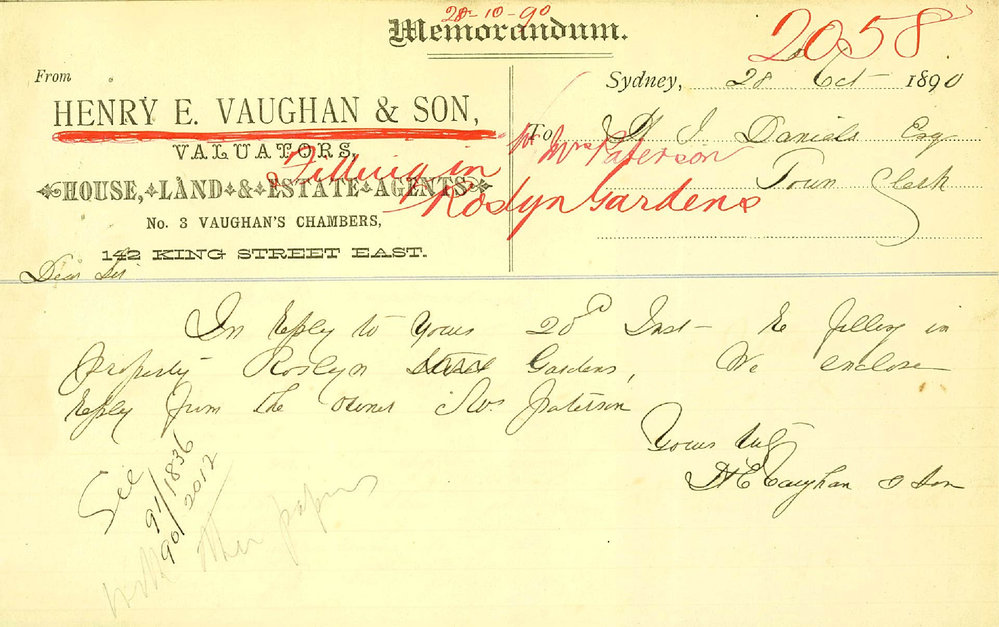 28-10-90
Memorandum.
2058
From
Sydney, 28 Oct 1890
HENRY E. VAUGHAN & SON,
To H J Daniels Esq
VALUATORS,
Mrs Paterson
Filling in
Town Clerk
HOUSE, LAND & ESTATE AGENTS
Roslyn Gardens
No. 3 VAUGHAN'S CHAMBERS,
142 KING STREET EAST.
Dear Sir
In reply to Yours 20th Inst - re filling in
property Roslyn Street Gardens, We enclose
reply from the owner Mrs Paterson
Yours truly
H E Vaughan & Son
See 91/1836
90/2012
with other papers